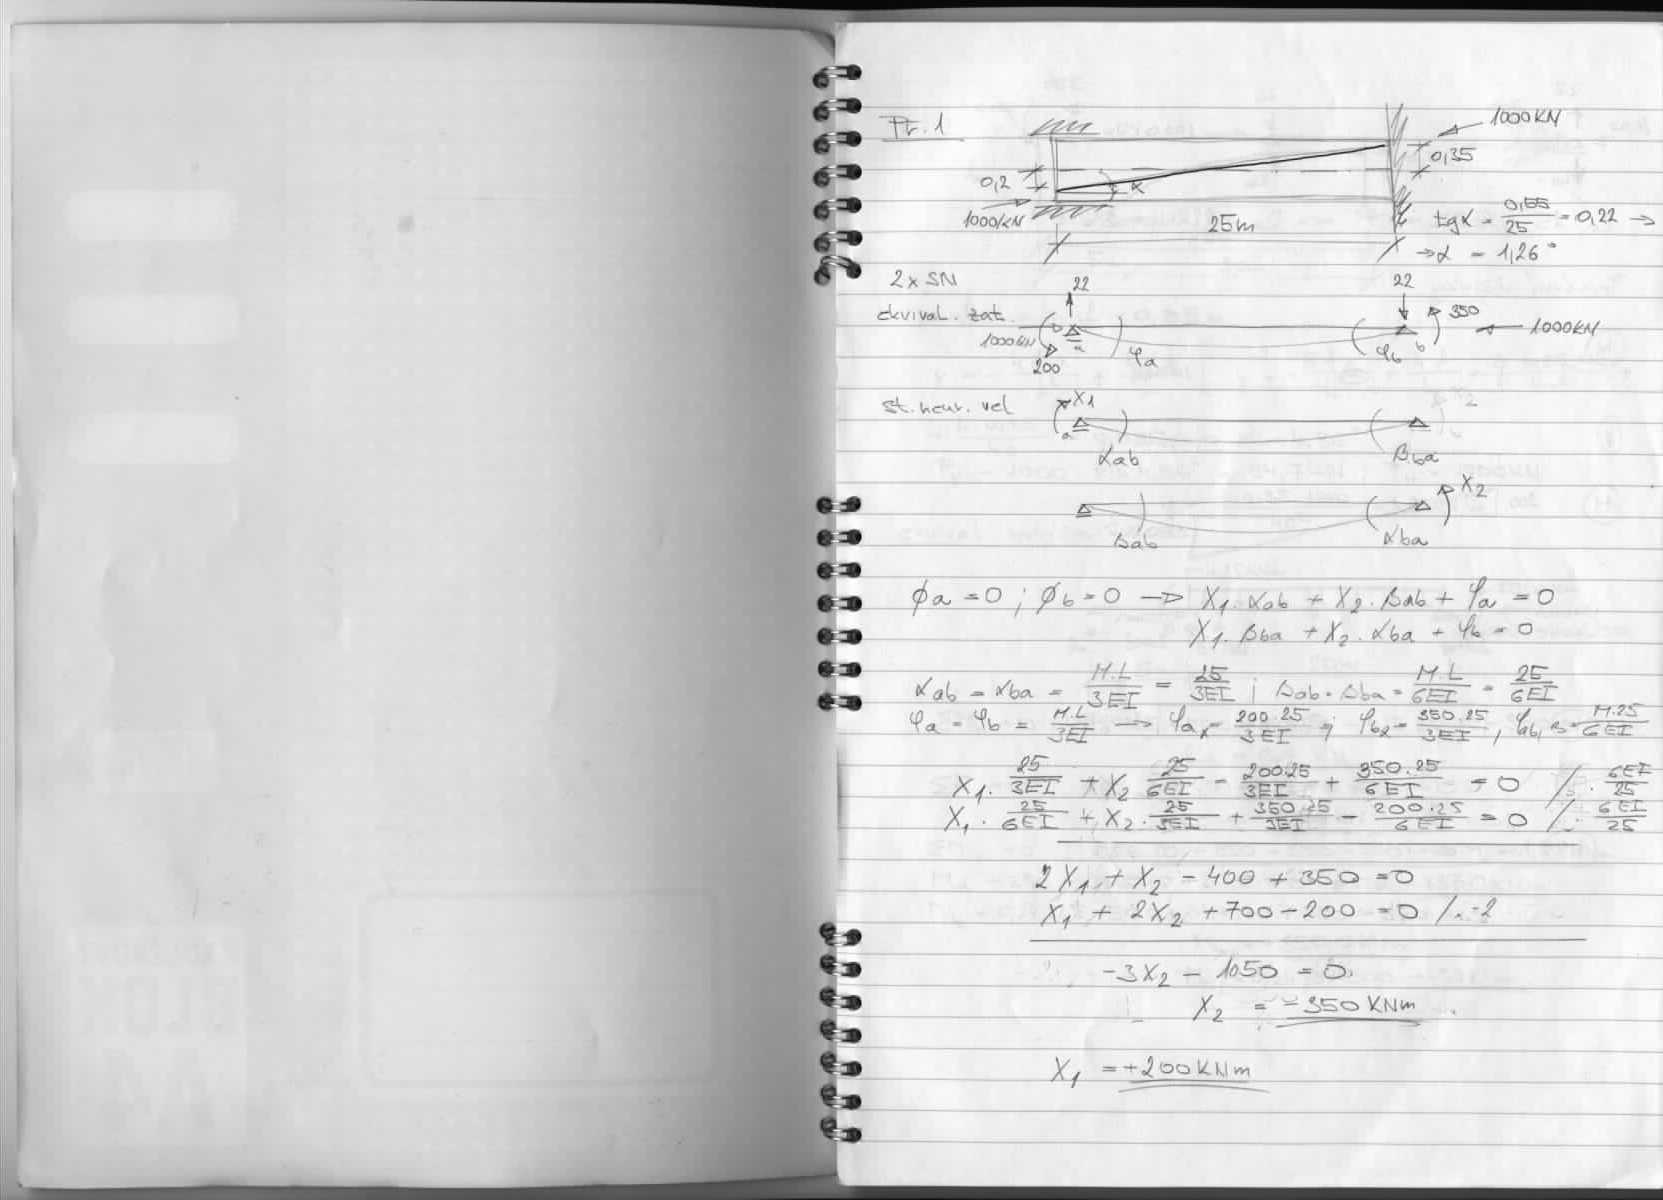 Př. 1
1000KN
0,35
0,2
α
1000KN
25m
tgα = 0,55/25 = 0,22 →
→ α = 1,26°
2x SN
22
22
ekvival. zat.
350
1000KN
1000KN
a
φa
φb
b
200
st. neur. vel
X1
a
αab
βba
X2
βab
αba
φa = 0 ; φb = 0 → X1. αab + X2. βab + φa = 0
X1. βba + X2. αba + φb = 0
αab = αba = M.L/3EI = 25/3EI ; βab = βba = M.L/6EI = 25/6EI
φa = φb = M.L/3EI → φa = 200.25/3EI ; φb2 = 350.25/3EI , M.25/6EI
X1. 25/3EI + X2 25/6EI - 200.25/3EI + 350.25/6EI = 0 /. 6EI/25
X1. 25/6EI + X2. 25/3EI + 350.25/3EI - 200.25/6EI = 0 /. 6EI/25
2X1 + X2 - 400 + 350 = 0
X1 + 2X2 + 700 - 200 = 0 /. -2
-3X2 - 1050 = 0
X2 = -350 KNm
X1 = +200KNm